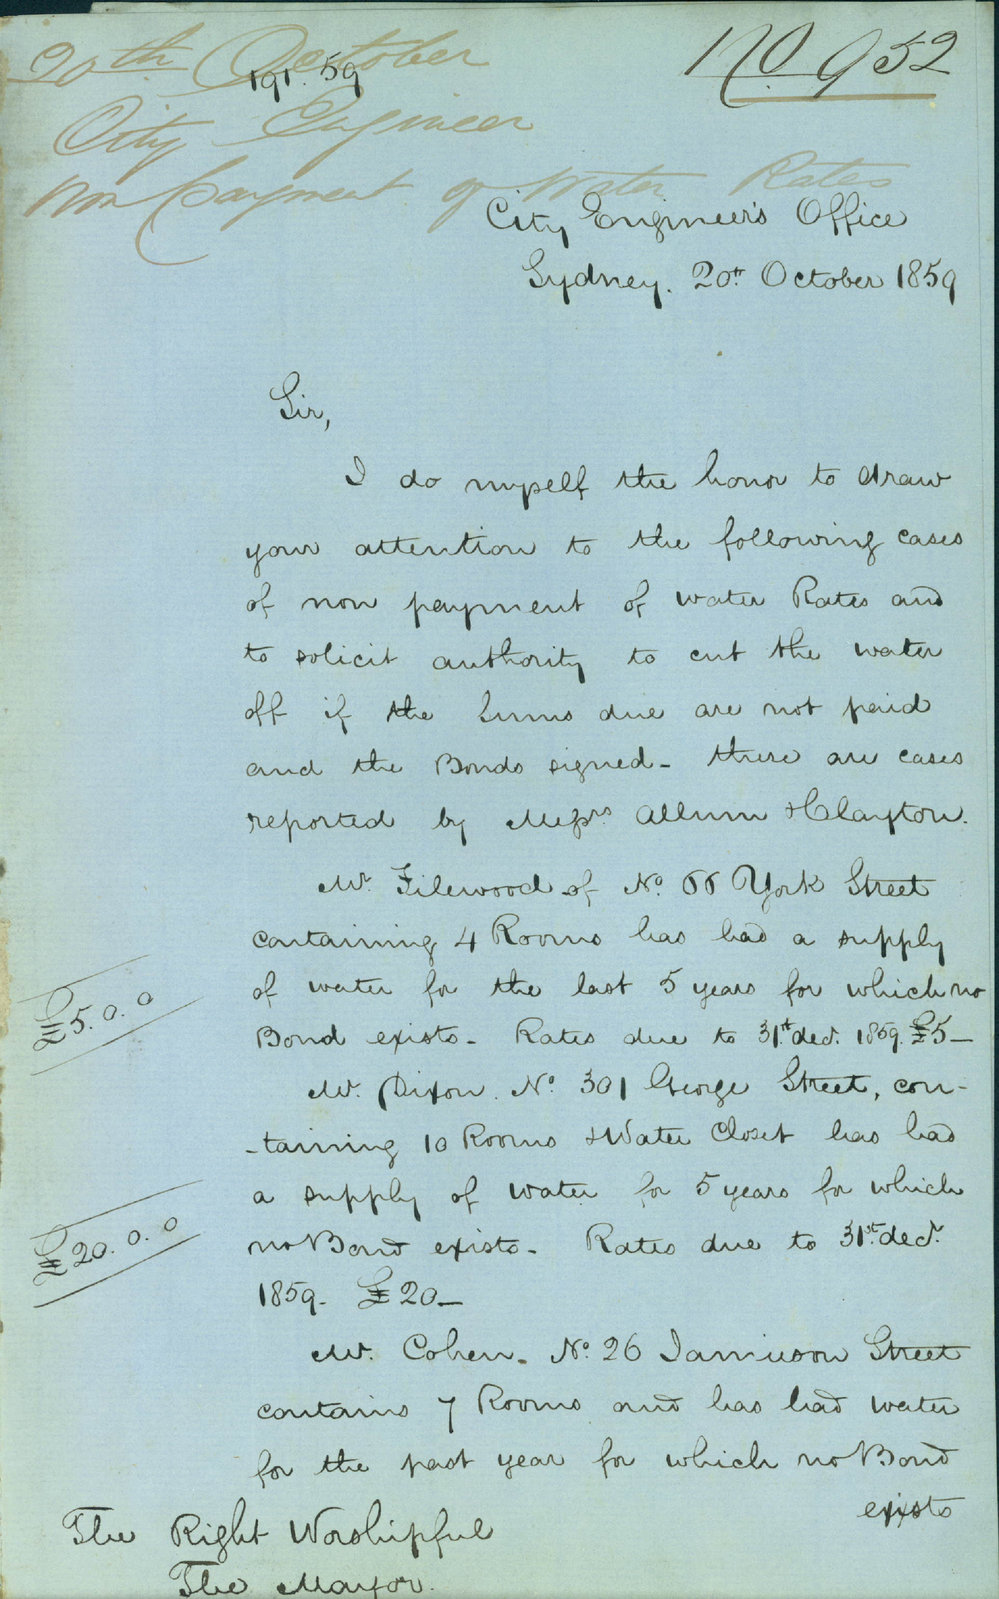 20th October
191. 59
No 952
City Engineer
Non payment of Water Rates
City Engineer's Office
Sydney. 20th October 1859
Sir,
I do myself the honor to draw
your attention to the following cases
of non payment of water Rates and
to solicit authority to cut the water
off if the Sums due are not paid
and the Bonds signed - these are cases
reported by Messrs Allum & Clayton.
Mr. Filewood of No. 66 York Street
containing 4 Rooms has had a supply
of water for the last 5 years for which no
£5.0.0
Bond exists - Rates due to 31st decr. 1859. £5 -
Mr. Dixon. No. 301 George Street, con-
-taining 10 Rooms & Water Closet has had
a supply of water for 5 years for which
£20.0.0
no Bond exists - Rates due to 31st. decr.
1859 - £20 -
Mr. Cohen - No. 26 Jamieson Street
contains 7 Rooms and has had water
for the past year for which no Bond
exists
The Right Worshipful
The Mayor.